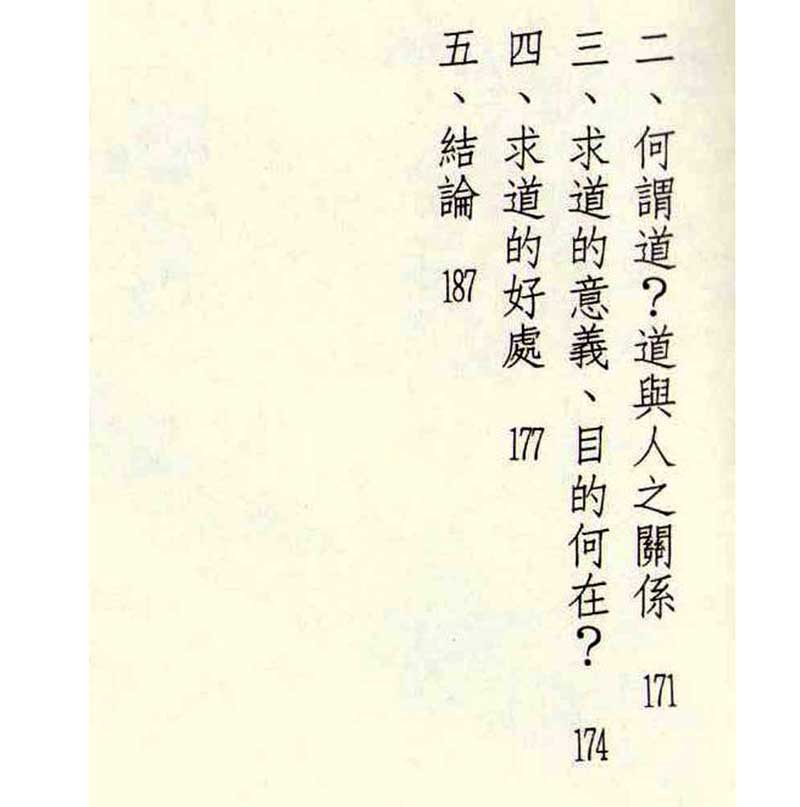 二、何謂道？道與人之關係 171
三、求道的意義、目的何在？ 174
四、求道的好處 177
五、結論 187